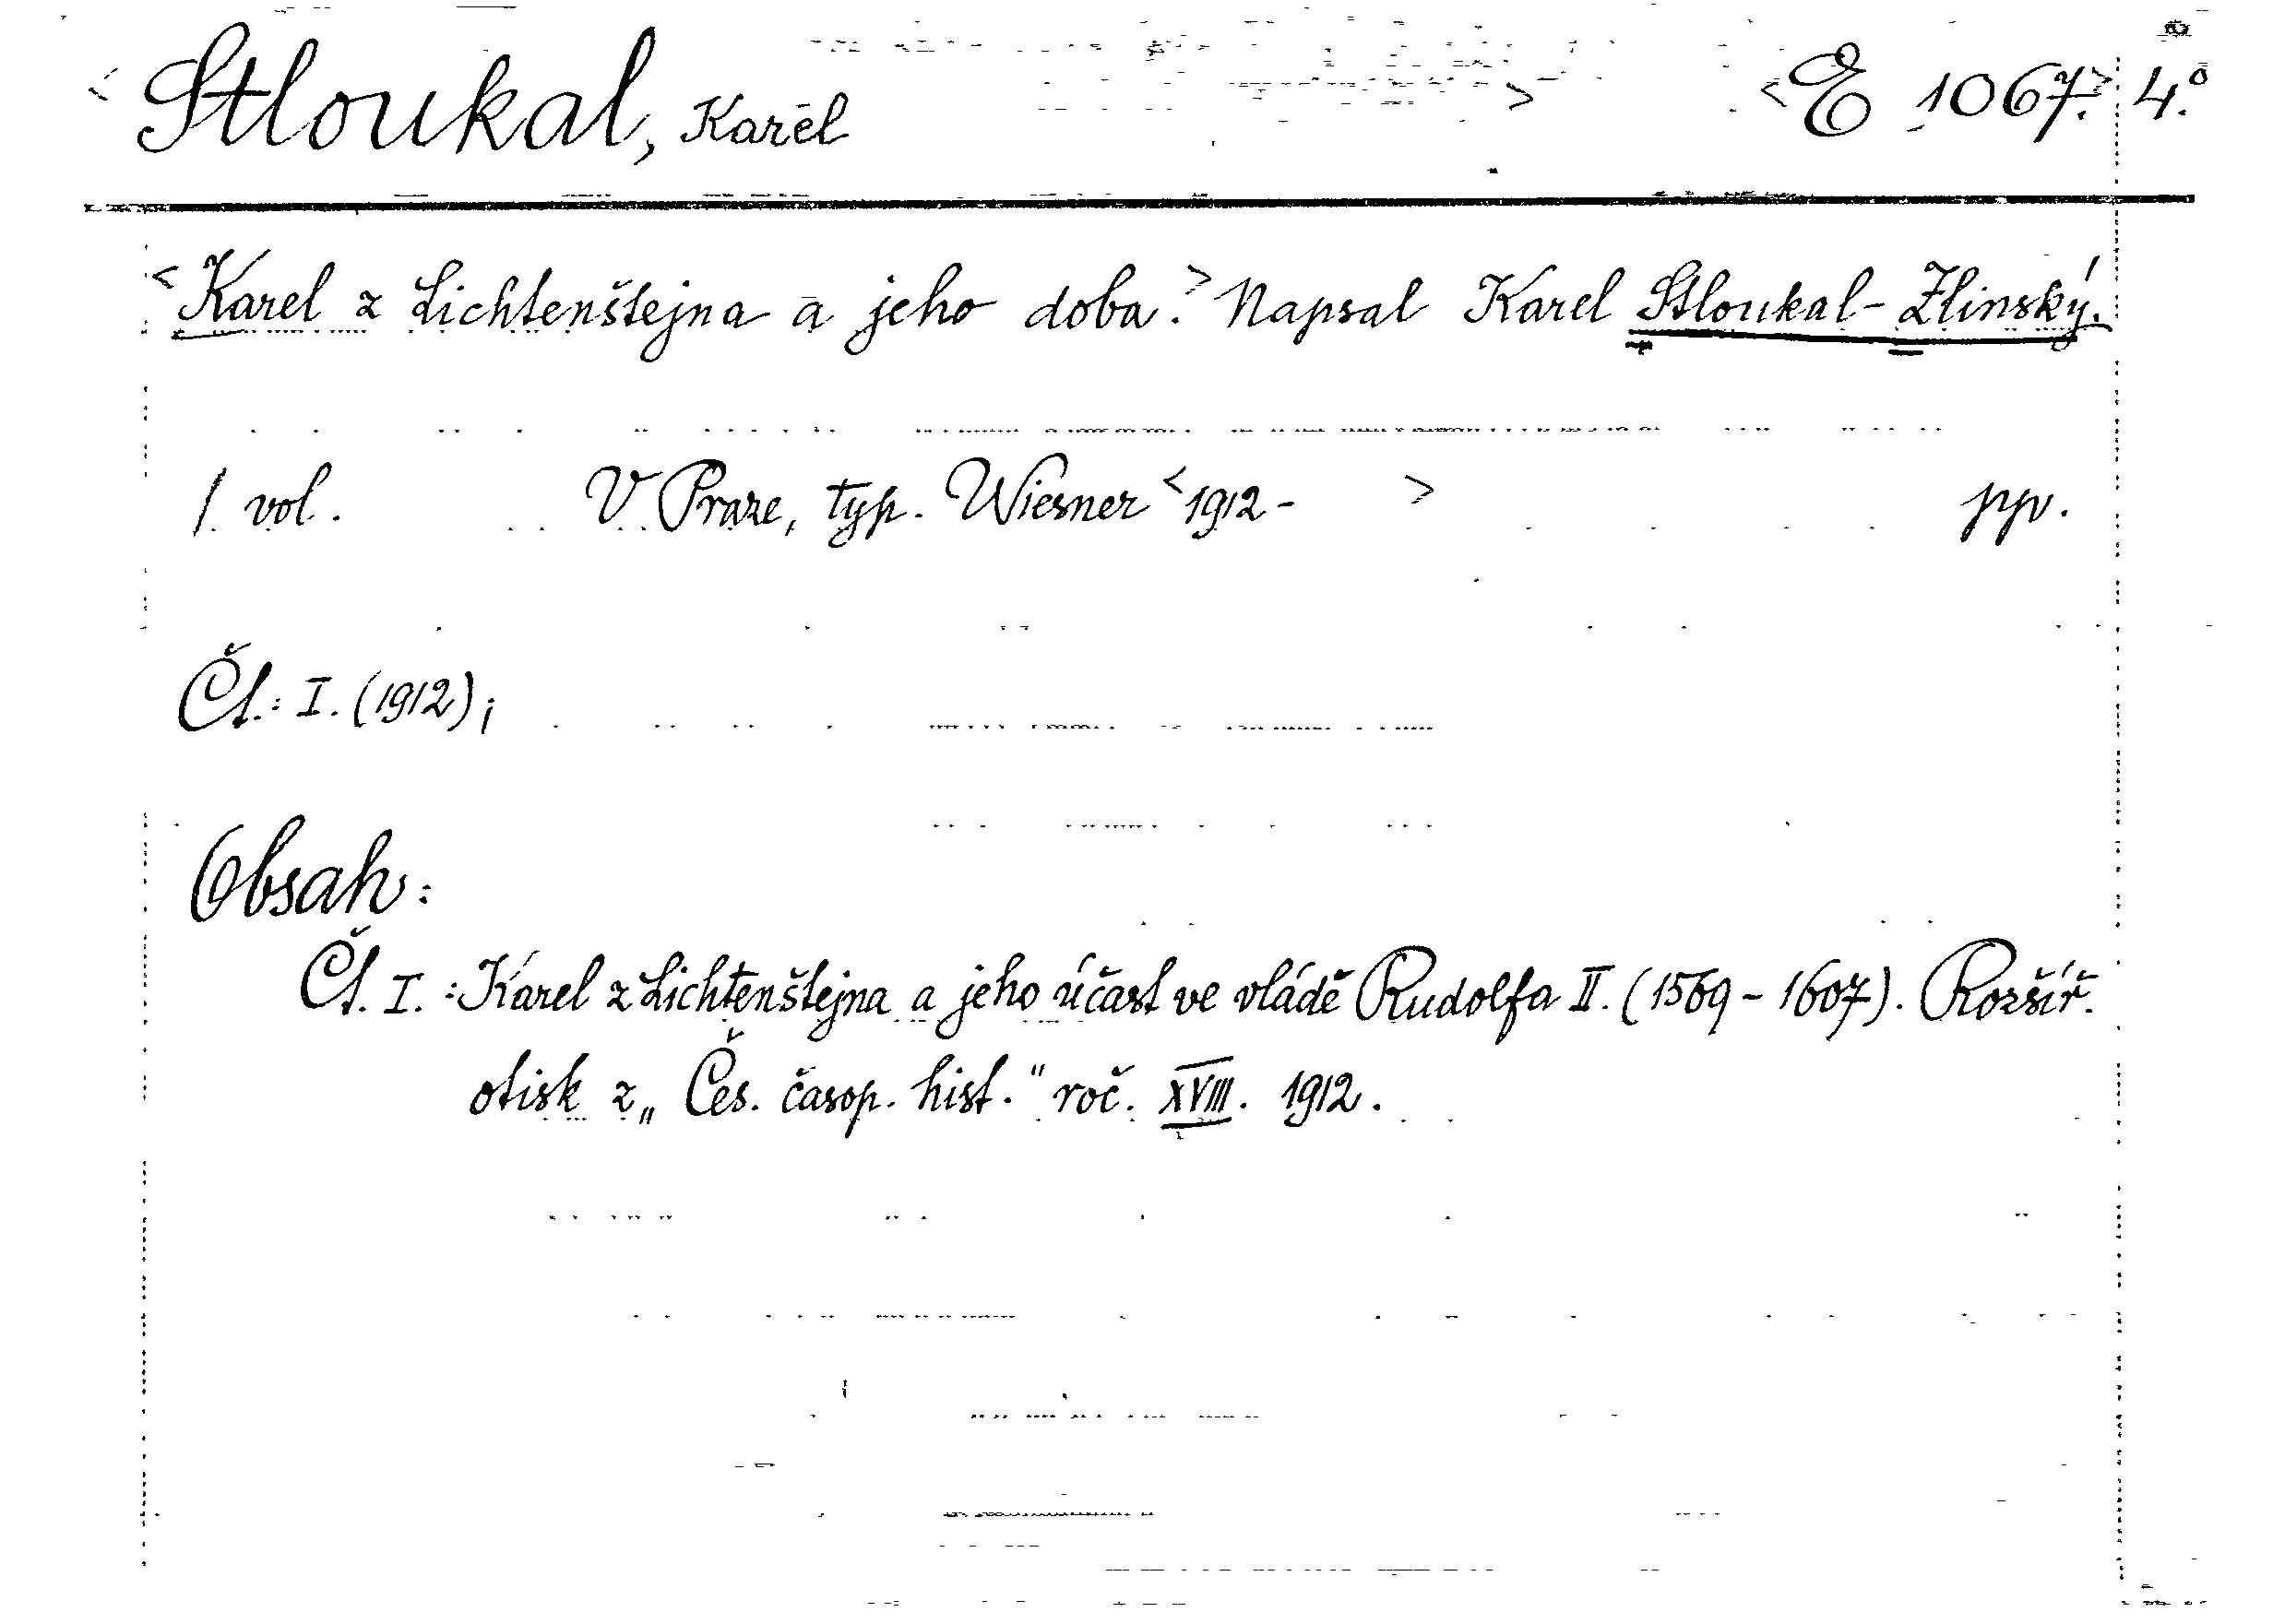 <Stloukal, Karel > <E 1067.> 4.°
<Karel z Lichtenštejna a jeho doba.> Napsal Karel Stloukal-Zlinský.
1 vol. V Praze, typ. Wiesner <1912- > ppv.
Čl.: I. (1912);
Obsah:
Čl. I.: Karel z Lichtenštejna a jeho účast ve vládě Rudolfa II. (1569-1607). Rozšíř.
otisk z „Čes. časop. hist." roč. XVIII. 1912.